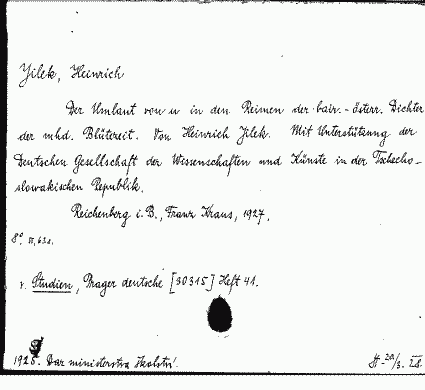 Jilek, Heinrich
Der Umlaut von u in den Reimen der bair.-österr. Dichter
der mhd. Blütezeit. Von Heinrich Jilek. Mit Unterstützung der
Deutschen Gesellschaft der Wissenschaften und Künste in der Tschecho-
slowakischen Republik.
Reichenberg i. B., Franz Kraus, 1927.
8°. VI, 63 s.
v. Studien, Prager deutsche [30315] Heft 41.
Dar ministerstva školství.